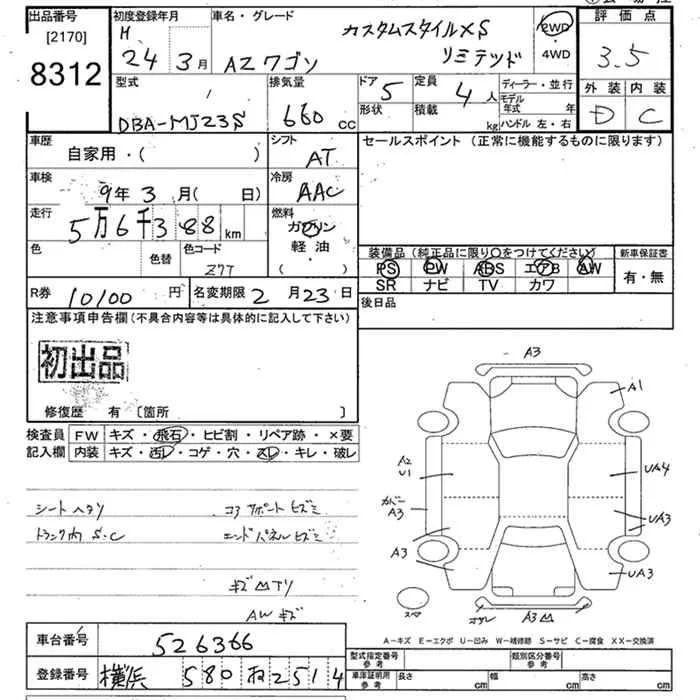 出品番号
[2170]
8312
初度登録年月
H
24 3月
車名・グレード
カスタムスタイルXS
AZワゴン リミテッド
2WD
4WD
評価点
3.5
外装 内装
D C
型式
DBA-MJ23S
排気量
660 cc
ドア 5
定員 4人
形状
積載 kg
ディーラー・並行
モデル年式 年
ハンドル 左・右
車歴
自家用・( )
シフト
AT
セールスポイント (正常に機能するものに限ります)
車検
9年3月( 日)
冷房
AAC
走行
5万6千388km
燃料
ガソリン
軽油
( )
色
色替
色コード
Z7T
装備品 (純正品に限り○をつけてください)
PS PW ABS エアB AW
SR ナビ TV カワ
新車保証書
有・無
R券
10100円
名変期限 2月23日
後日品
注意事項申告欄(不具合内容等は具体的に記入して下さい)
初出品
修復歴 有 [箇所 ]
検査員
記入欄
FW キズ・飛石・ヒビ割・リペア跡・×要
内装 キズ・汚レ・コゲ・穴・スレ・キレ・破レ
シートヘタリ
コアサポートヒズミ
トランク内 S・C
エンドパネルヒズミ
AWキズ
A3
A1
A2
U1
UA4
カバー
A3
UA3
A3
UA3
スペア
A3
A-キズ E-エクボ U-凹み W-補修跡 S-サビ C-腐食 XX-交換済
車台番号
526366
登録番号
横浜 580 ね 2514
型式指定番号
参考
類別区分番号
参考
車庫証明用
参考
長さ cm
幅 cm
高さ cm